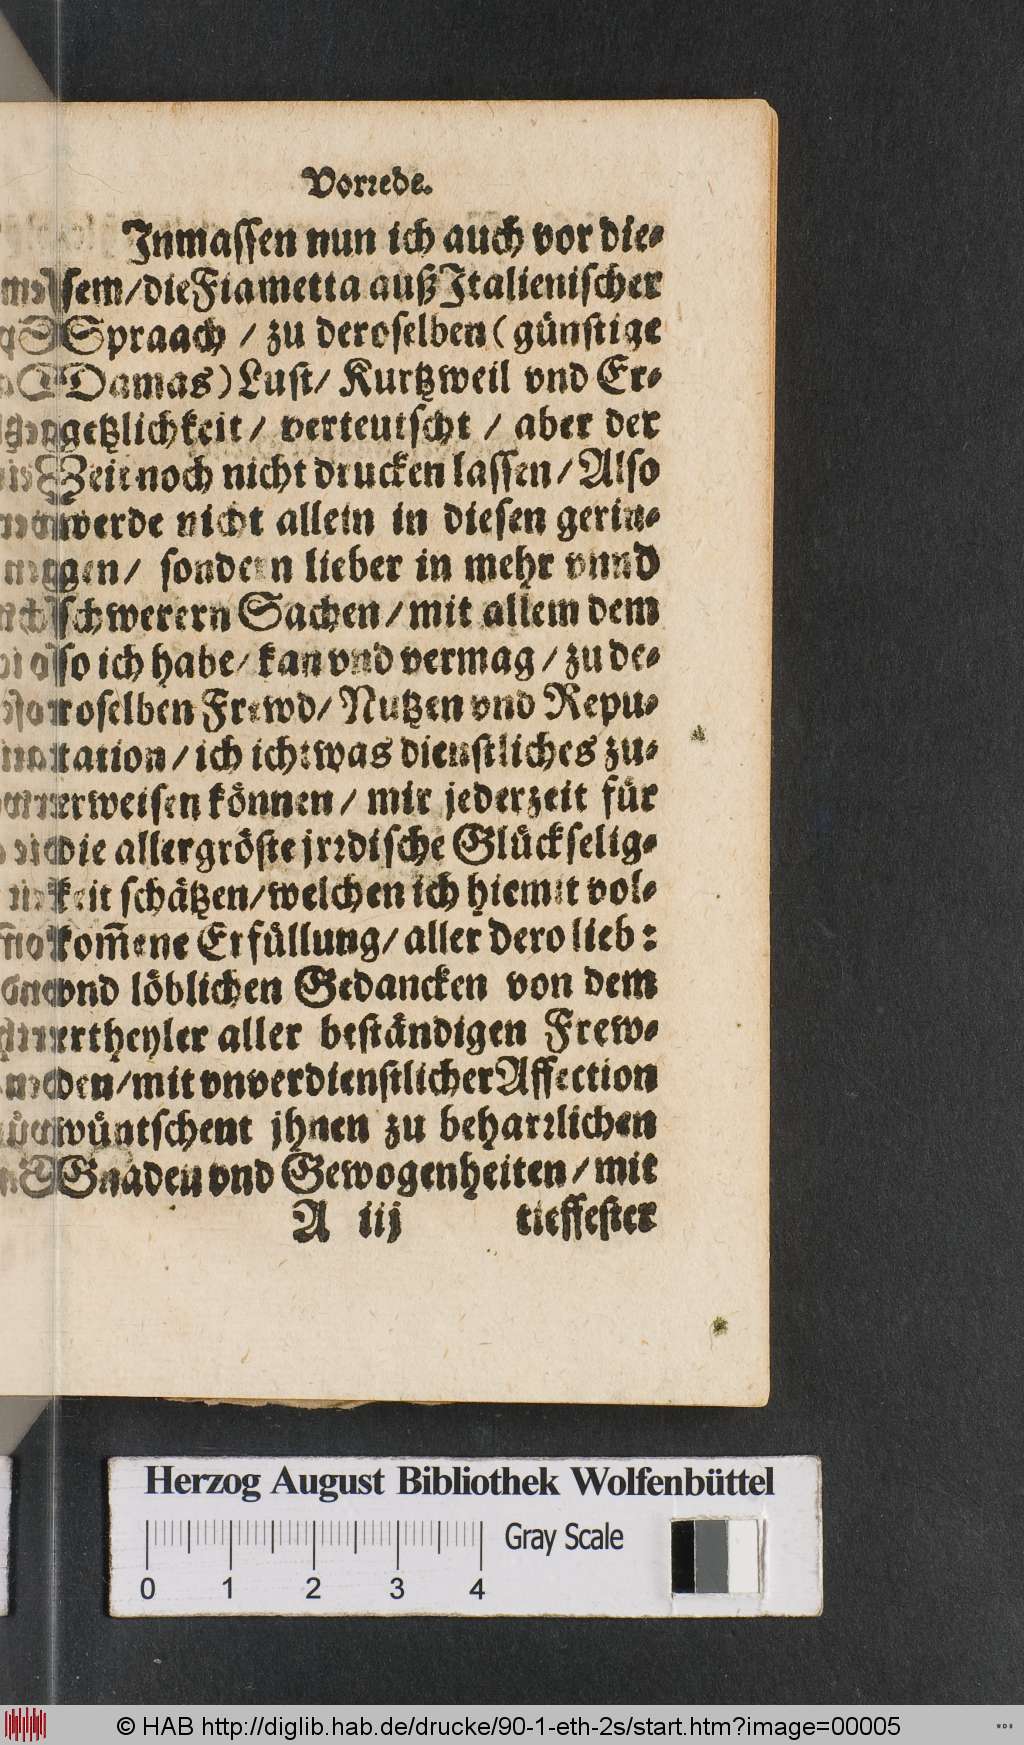 Vorrede.
Inmassen nun ich auch vor die-
sem/die Fiametta auß Italienischer
Spraach / zu deroselben (günstige
Damas) Lust/ Kurtzweil vnd Er-
getzlichkeit/ verteutscht / aber der
Zeit noch nicht drucken lassen/ Also
werde nicht allein in diesen gerin-
gen/ sondern lieber in mehr vnnd
schwerern Sachen/ mit allem dem
so ich habe/ kan vnd vermag/ zu de-
roselben Frewd/ Nutzen vnd Repu-
tation/ ich ichtwas dienstliches zu-
erweisen können/ mir jederzeit für
die allergröste jrrdische Glückselig-
keit schätzen/welchen ich hiemit vol-
kom̃ene Erfüllung/ aller dero lieb:
vnd löblichen Gedancken von dem
ertheyler aller beständigen Frew-
den/mit vnverdienstlicher Affection
wüntschent jhnen zu beharrlichen
Gnaden vnd Gewogenheiten/ mit
A iij tieffester
Herzog August Bibliothek Wolfenbüttel
Gray Scale
0 1 2 3 4
© HAB http://diglib.hab.de/drucke/90-1-eth-2s/start.htm?image=00005